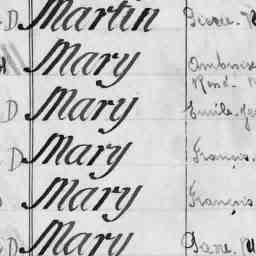 D Martin Pierre.
Mary Ambroise
René.
D Mary Emile.
D Mary François.
Mary François
D Mary